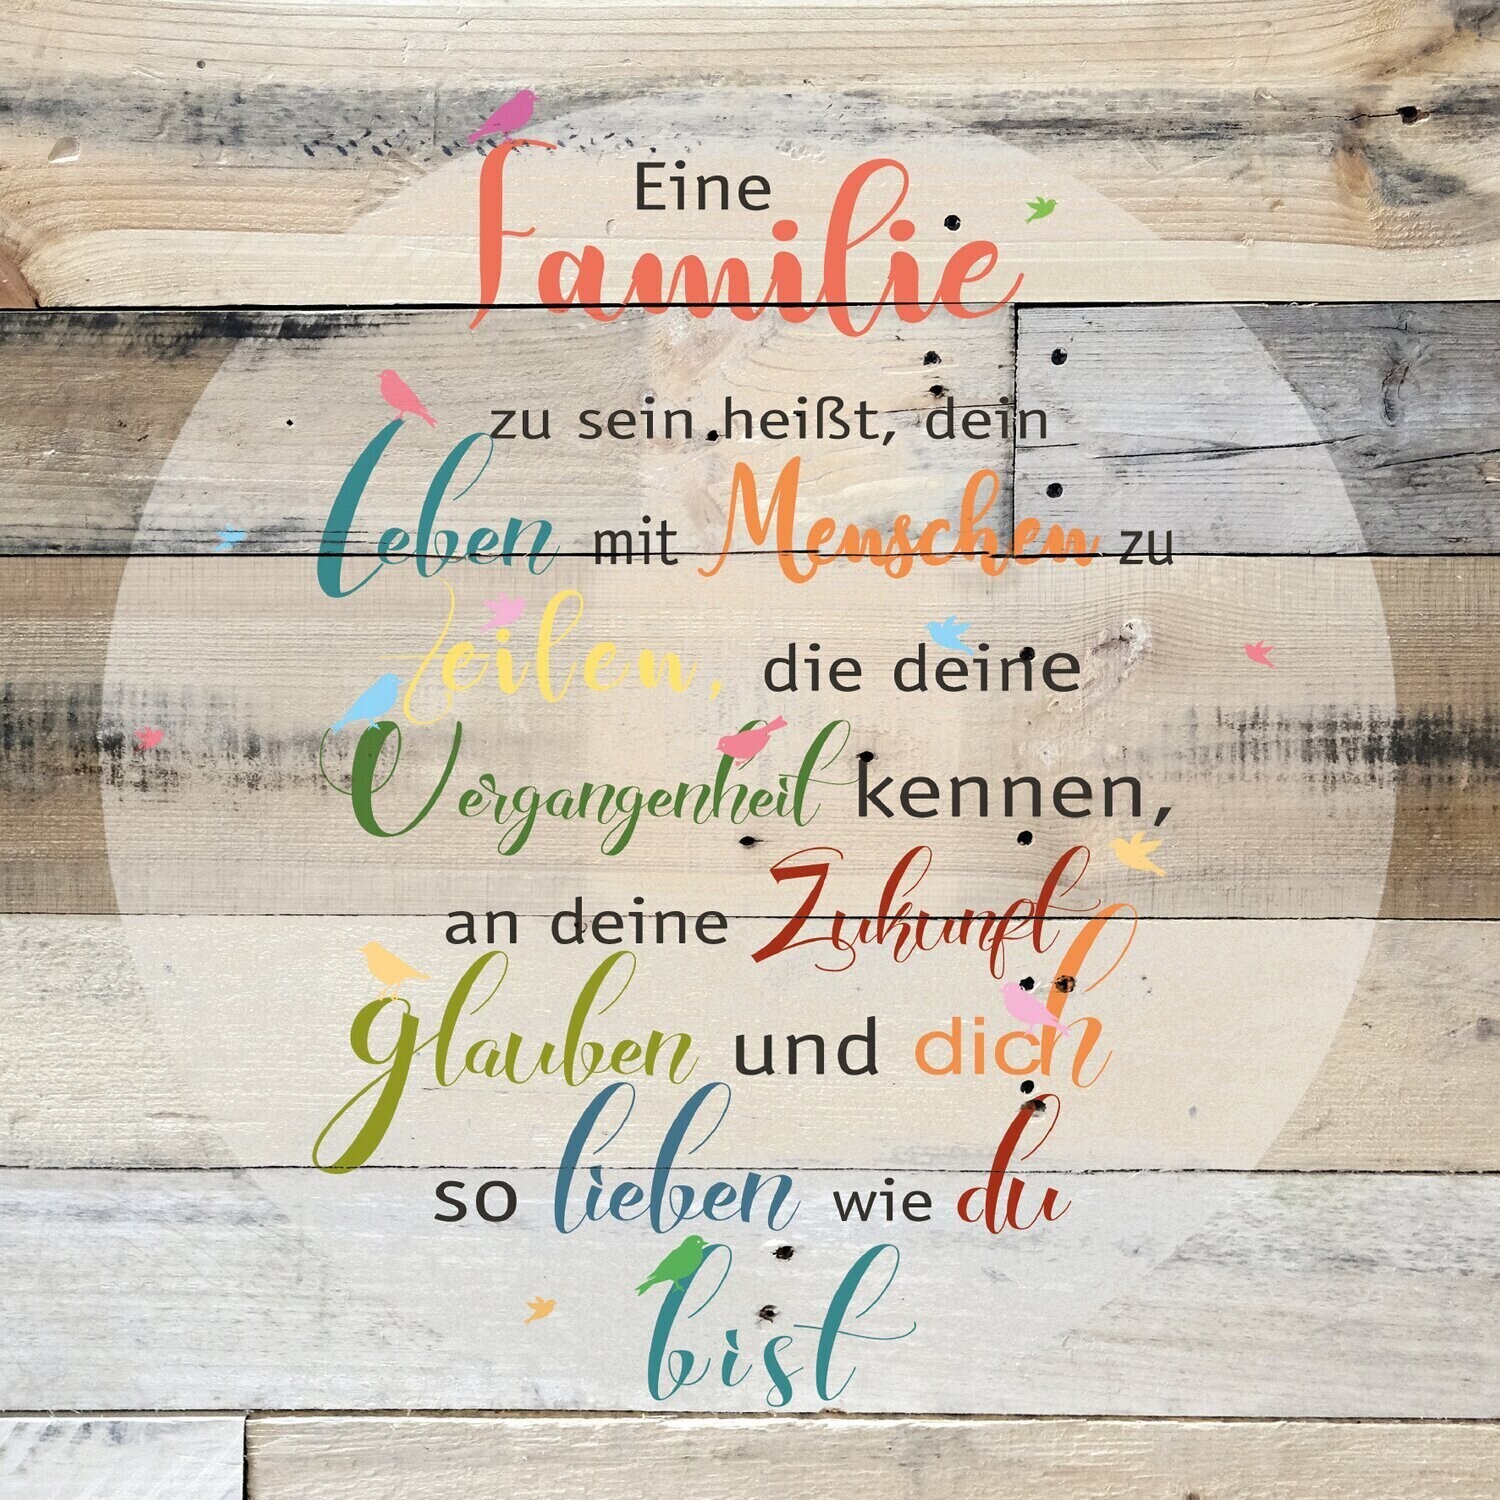 Eine
Familie
zu sein heißt, dein
Leben mit Menschen zu
Zeilen, die deine
Vergangenheit kennen,
an deine Zukunft
glauben und dich
so lieben wie du
bist